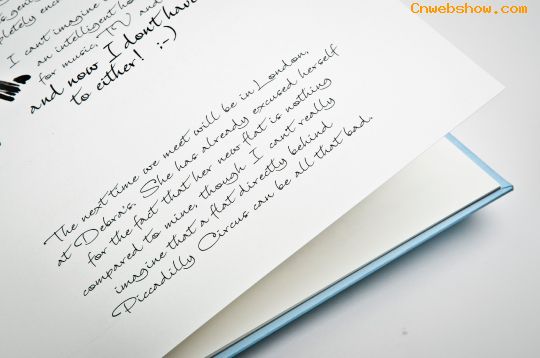 Cnwebshow.com
I can't imagine
an intelligent
for music, TV and
and now I dont have
to either! :-)
The next time we meet will be in London,
at Debra's. She has already excused herself
for the fact that her new flat is nothing
compared to mine, though I can't really
imagine that a flat directly behind
Piccadilly Circus can be all that bad.